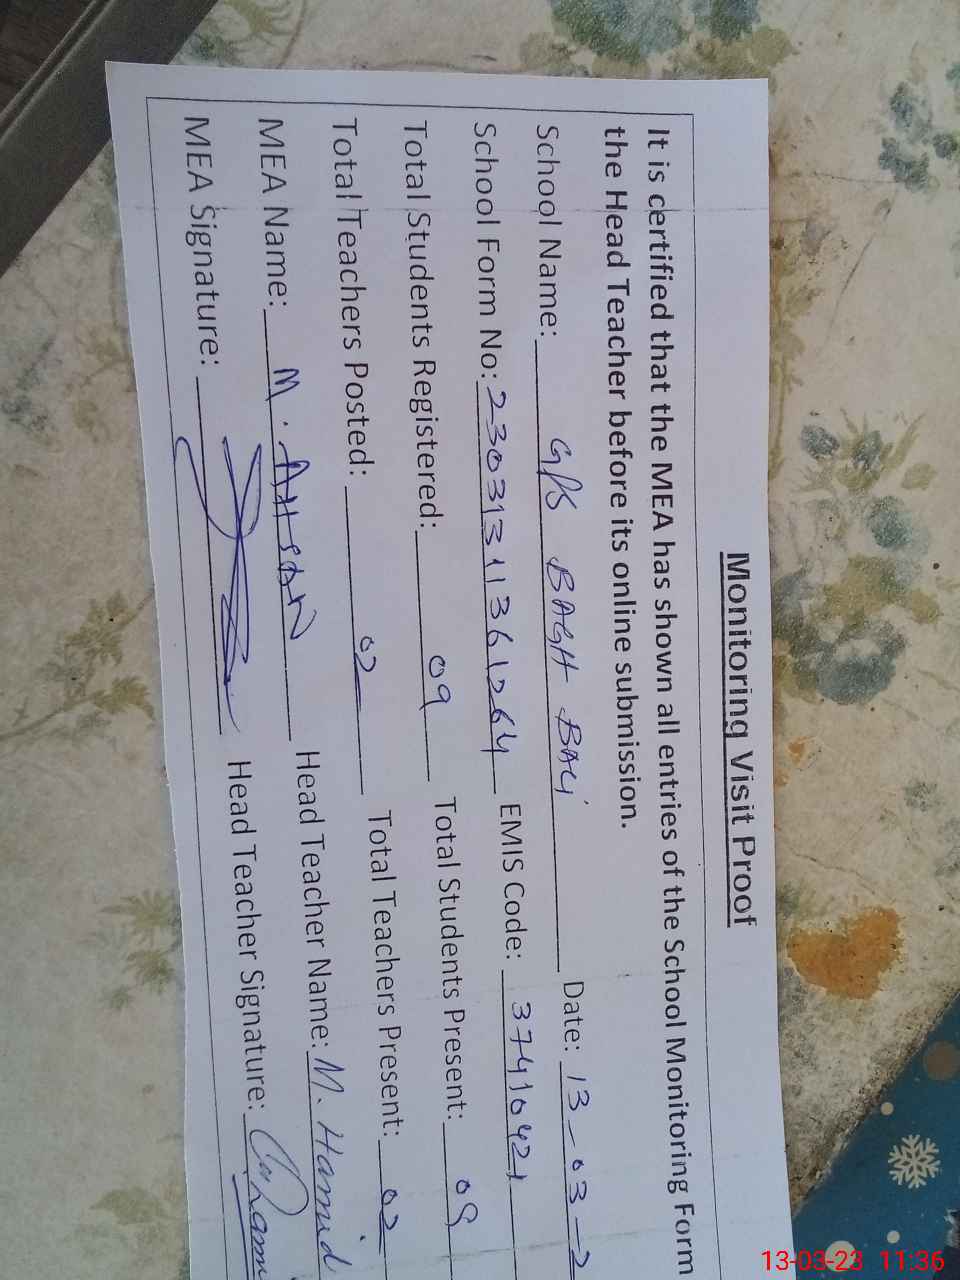 Monitoring Visit Proof
It is certified that the MEA has shown all entries of the School Monitoring Form
the Head Teacher before its online submission.
School Name: GPS BAGH BALI Date: 13-03-2
School Form No: 23031311361264 EMIS Code: 37410421
Total Students Registered: 09 Total Students Present: 09
Total Teachers Posted: 02 Total Teachers Present: 02
MEA Name: M. AHSAN Head Teacher Name: M. Hamid
MEA Signature: Head Teacher Signature:
13-03-23 11:36